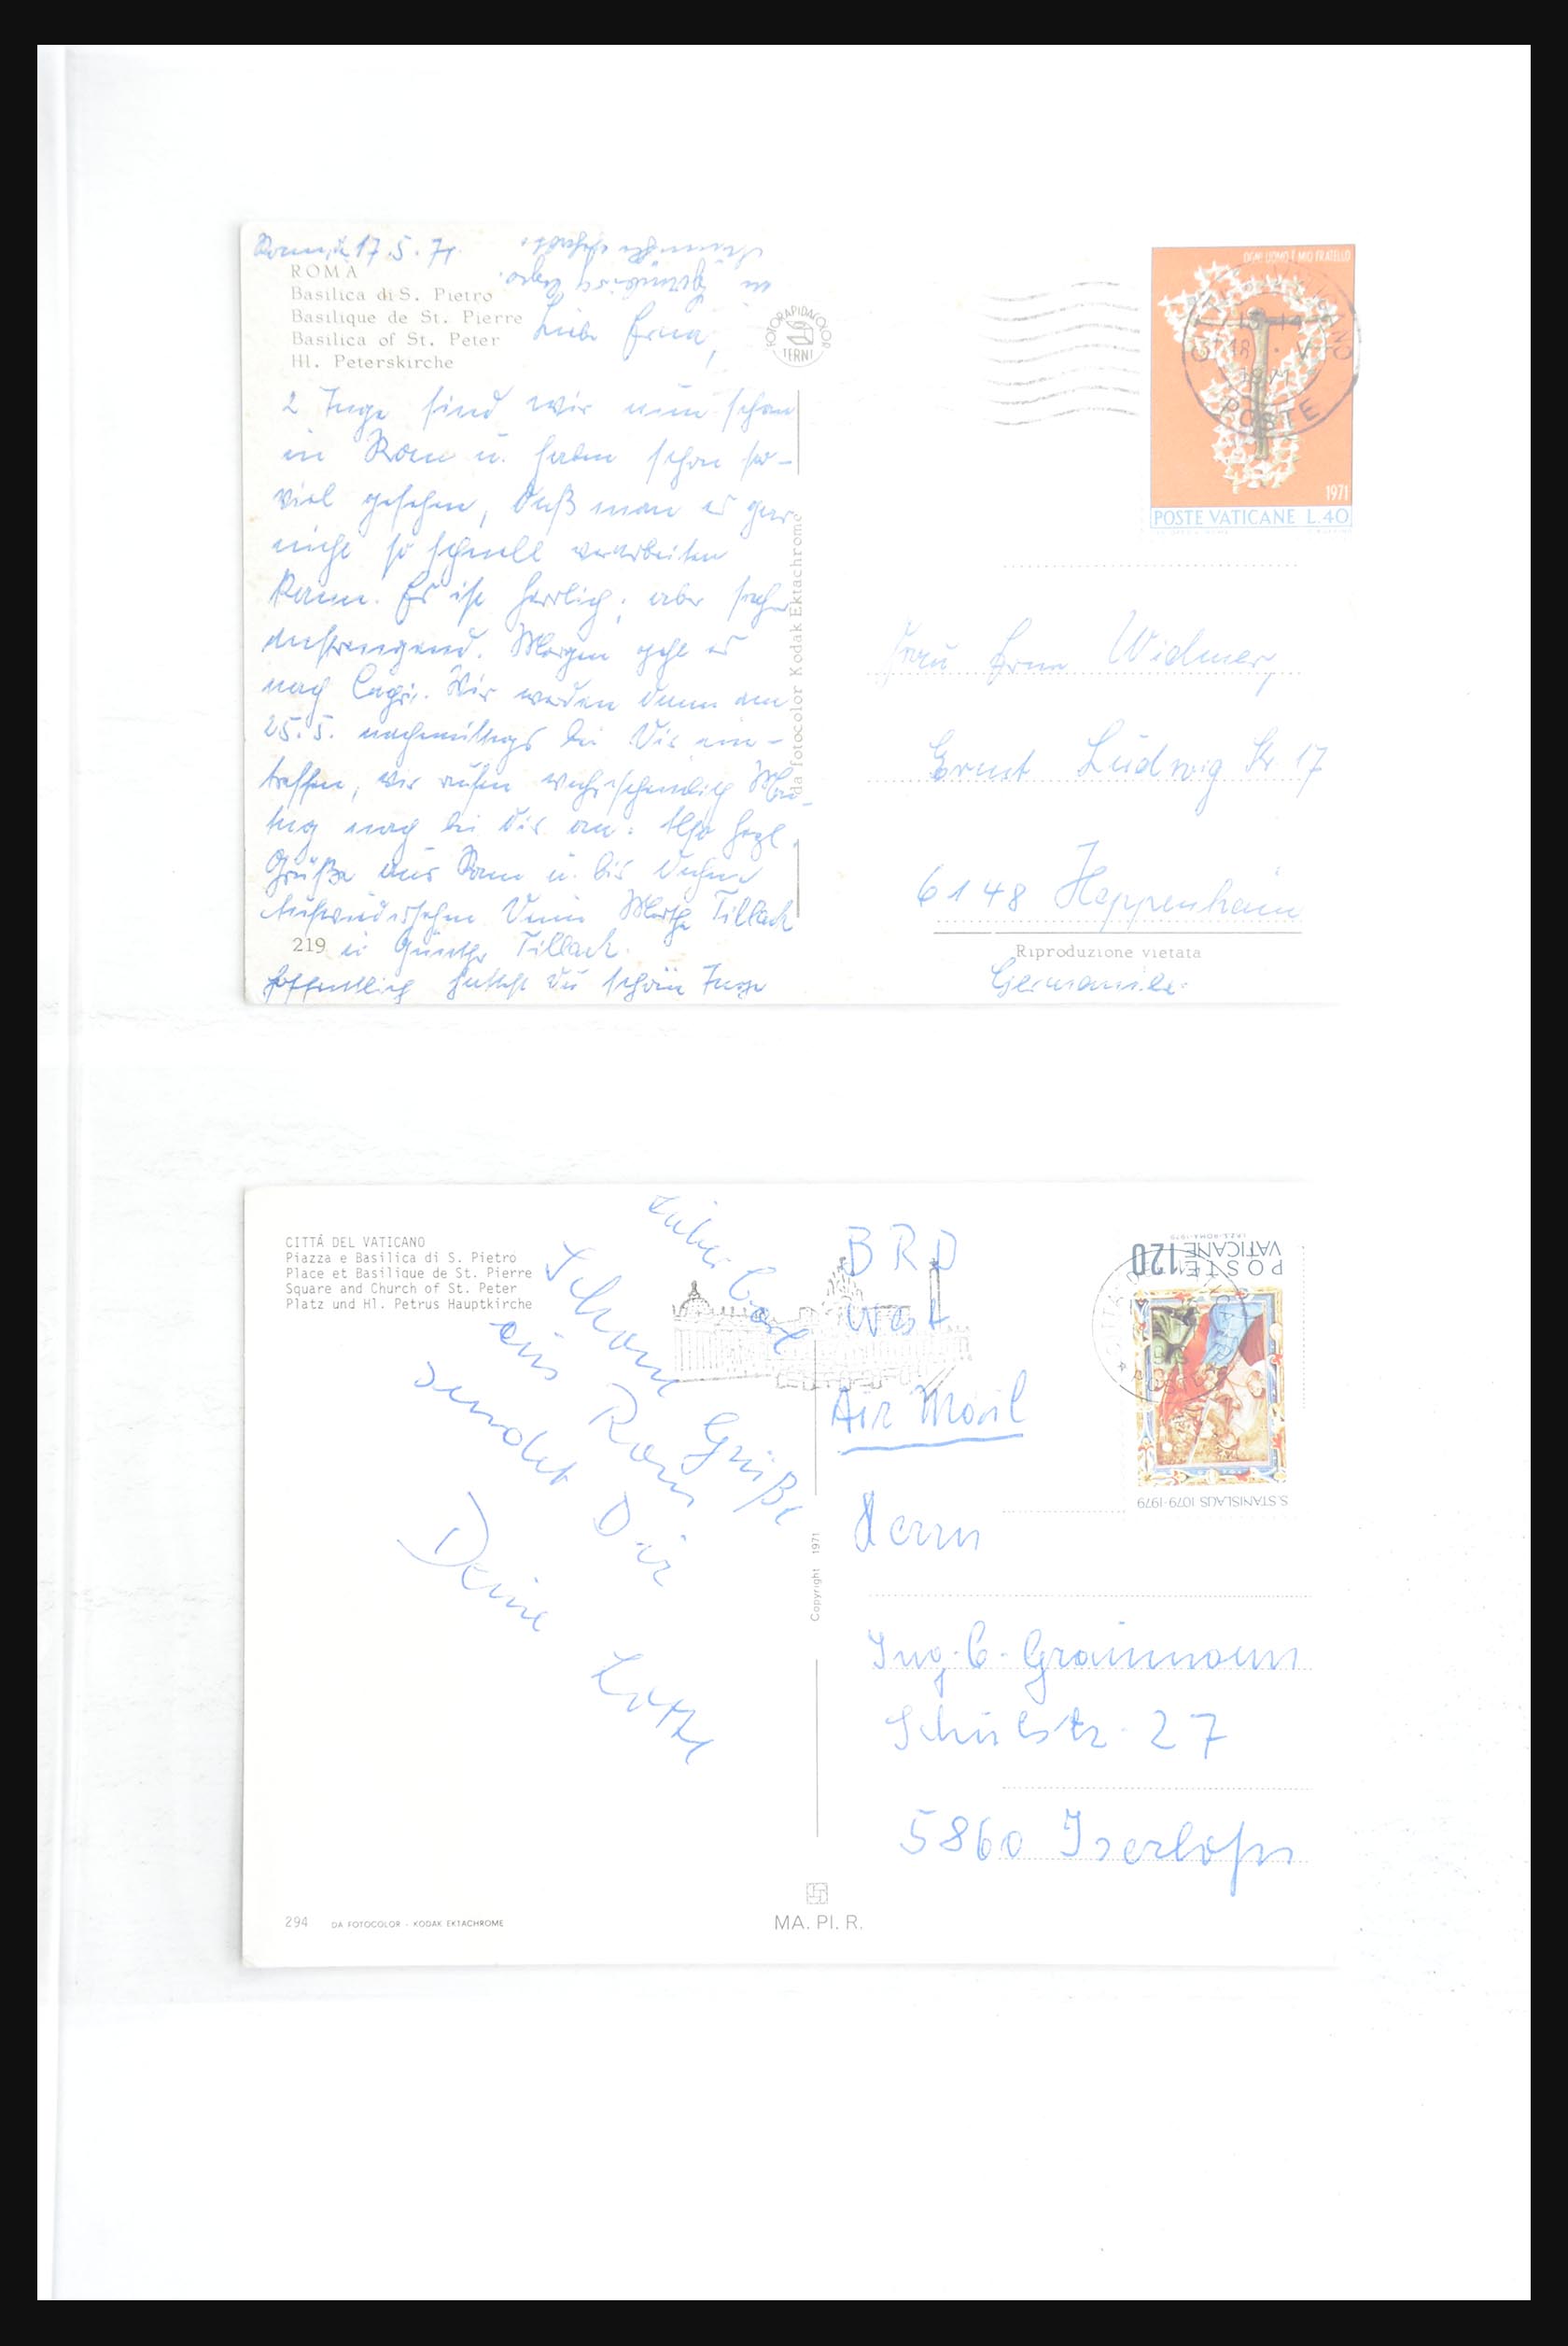 Rom, d. 17.5.71.
ROMA
Basilica di S. Pietro
Basilique de St. Pierre
Basilica of St. Peter
Hl. Peterskirche
Liebe Erna,
2 Tage sind wir nun schon
in Rom u. haben schon so-
viel gesehen, daß man es gar
nicht so schnell verarbeiten
kann. Es ist herrlich, aber
anstrengend. Morgen geht es
nach Capri. Wir werden dann am
25.5. nachmittags bei Dir ein-
treffen, wir rufen wahrscheinlich
noch bei Dir an. Also herzl.
Grüße aus Rom u. bis
Aufwiedersehen Deine Tillack
219 u. Günther Tillack.
Hoffentlich hattest Du schöne Tage
in
FOTORAPIDACOLOR
TERNI
da fotocolor Kodak Ektachrome
OGNI UOMO È MIO FRATELLO
18 · V
1971
POSTE
1971
POSTE VATICANE L.40
Frau Erna Widmer
Ernst Ludwig Str 17
6148 Heppenheim
Riproduzione vietata
Germania
CITTÁ DEL VATICANO
Piazza e Basilica di S. Pietro
Place et Basilique de St. Pierre
Square and Church of St. Peter
Platz und Hl. Petrus Hauptkirche
Lieber Carl
Schöne Grüße
aus Rom
sendet Dir
Deine
Lotte
BRD
West
Air Mail
POSTE
VATICANE 120
S. STANISLAUS 1079-1979
Herrn
Ing. C. Graumann
Schulstr. 27
5860 Iserlohn
Copyright 1971
294 DA FOTOCOLOR - KODAK EKTACHROME
MA. PI. R.